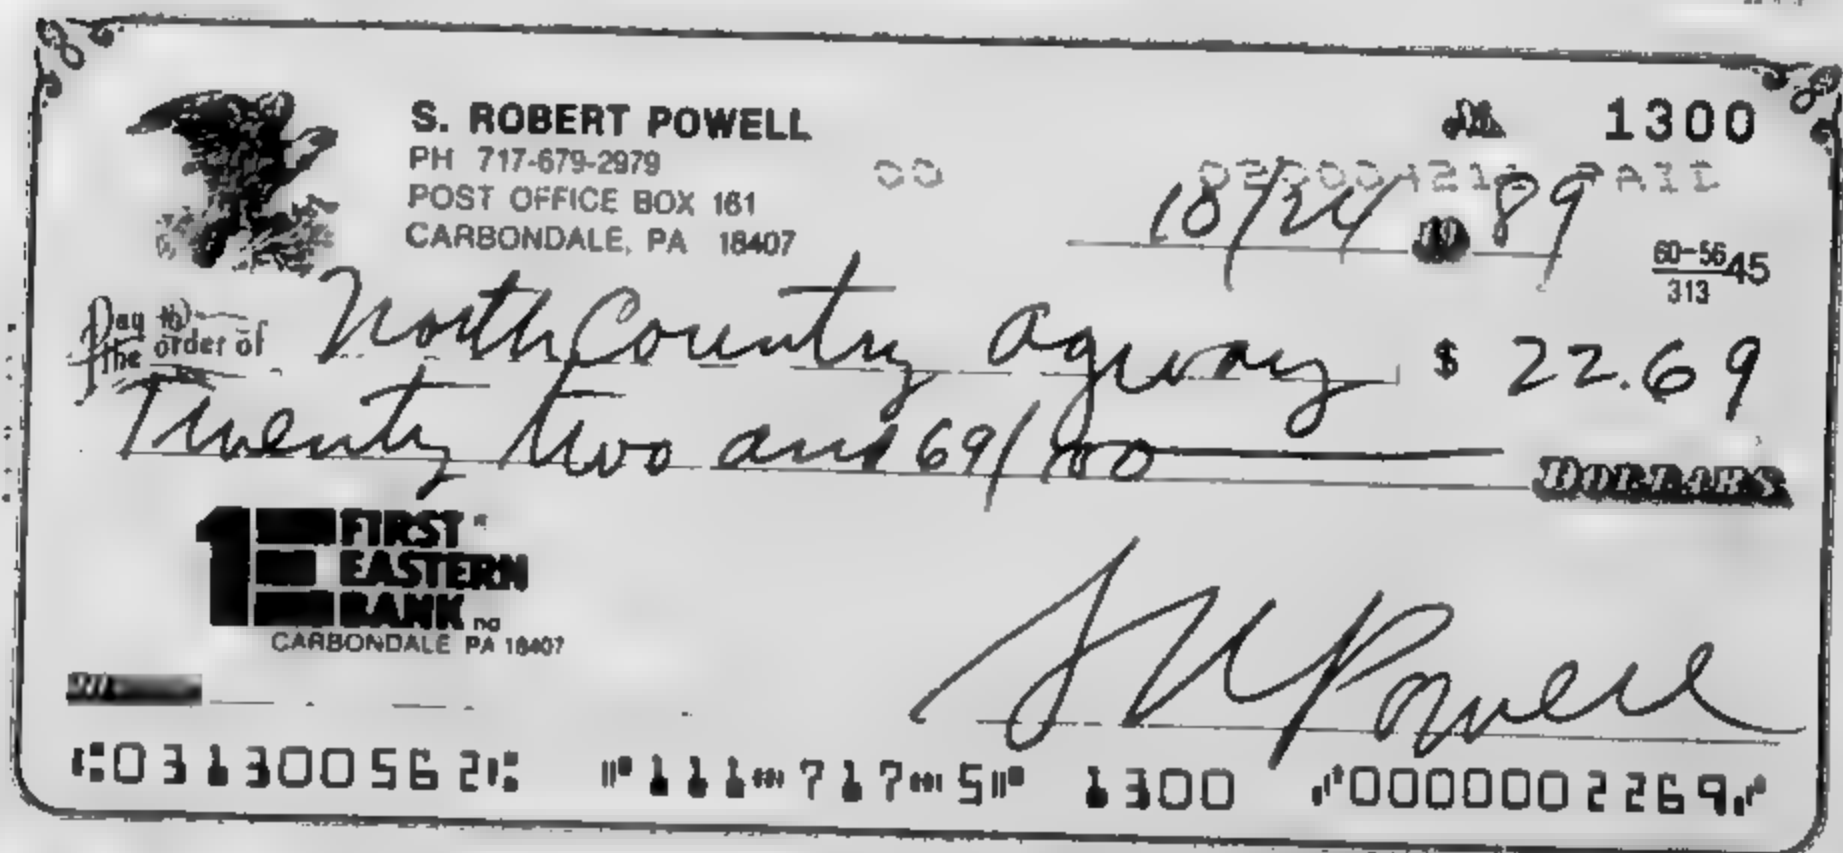 S. ROBERT POWELL
PH 717-679-2979
POST OFFICE BOX 161
CARBONDALE, PA 18407
1300
00
PAID
10/24 89
60-56 45
313
Pay to the order of North County Agway $ 22.69
Twenty two and 69/100 DOLLARS
1E FIRST EASTERN BANK na
CARBONDALE PA 18407
S R Powell
⑆031300562⑆ ⑈111⑉717⑉5⑈ 1300 ⑇0000002269⑇